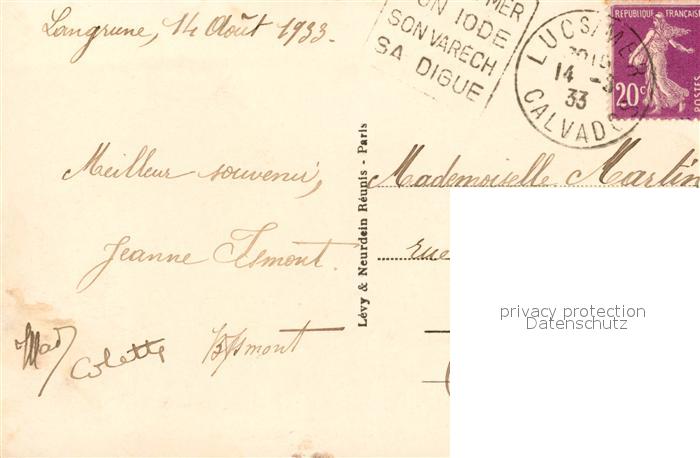 Langrune, 14 Août 1933.
MER
ON IODE
SON VARECH
SA DIGUE
LUC S/ MER
14 -
33
CALVADOS
REPUBLIQUE FRANÇAISE
20c
POSTES
Meilleur souvenir,
Jeanne Ismont.
Colette
Ismont
Lévy & Neurdein Réunis - Paris
Mademoiselle Martin
rue
privacy protection
Datenschutz